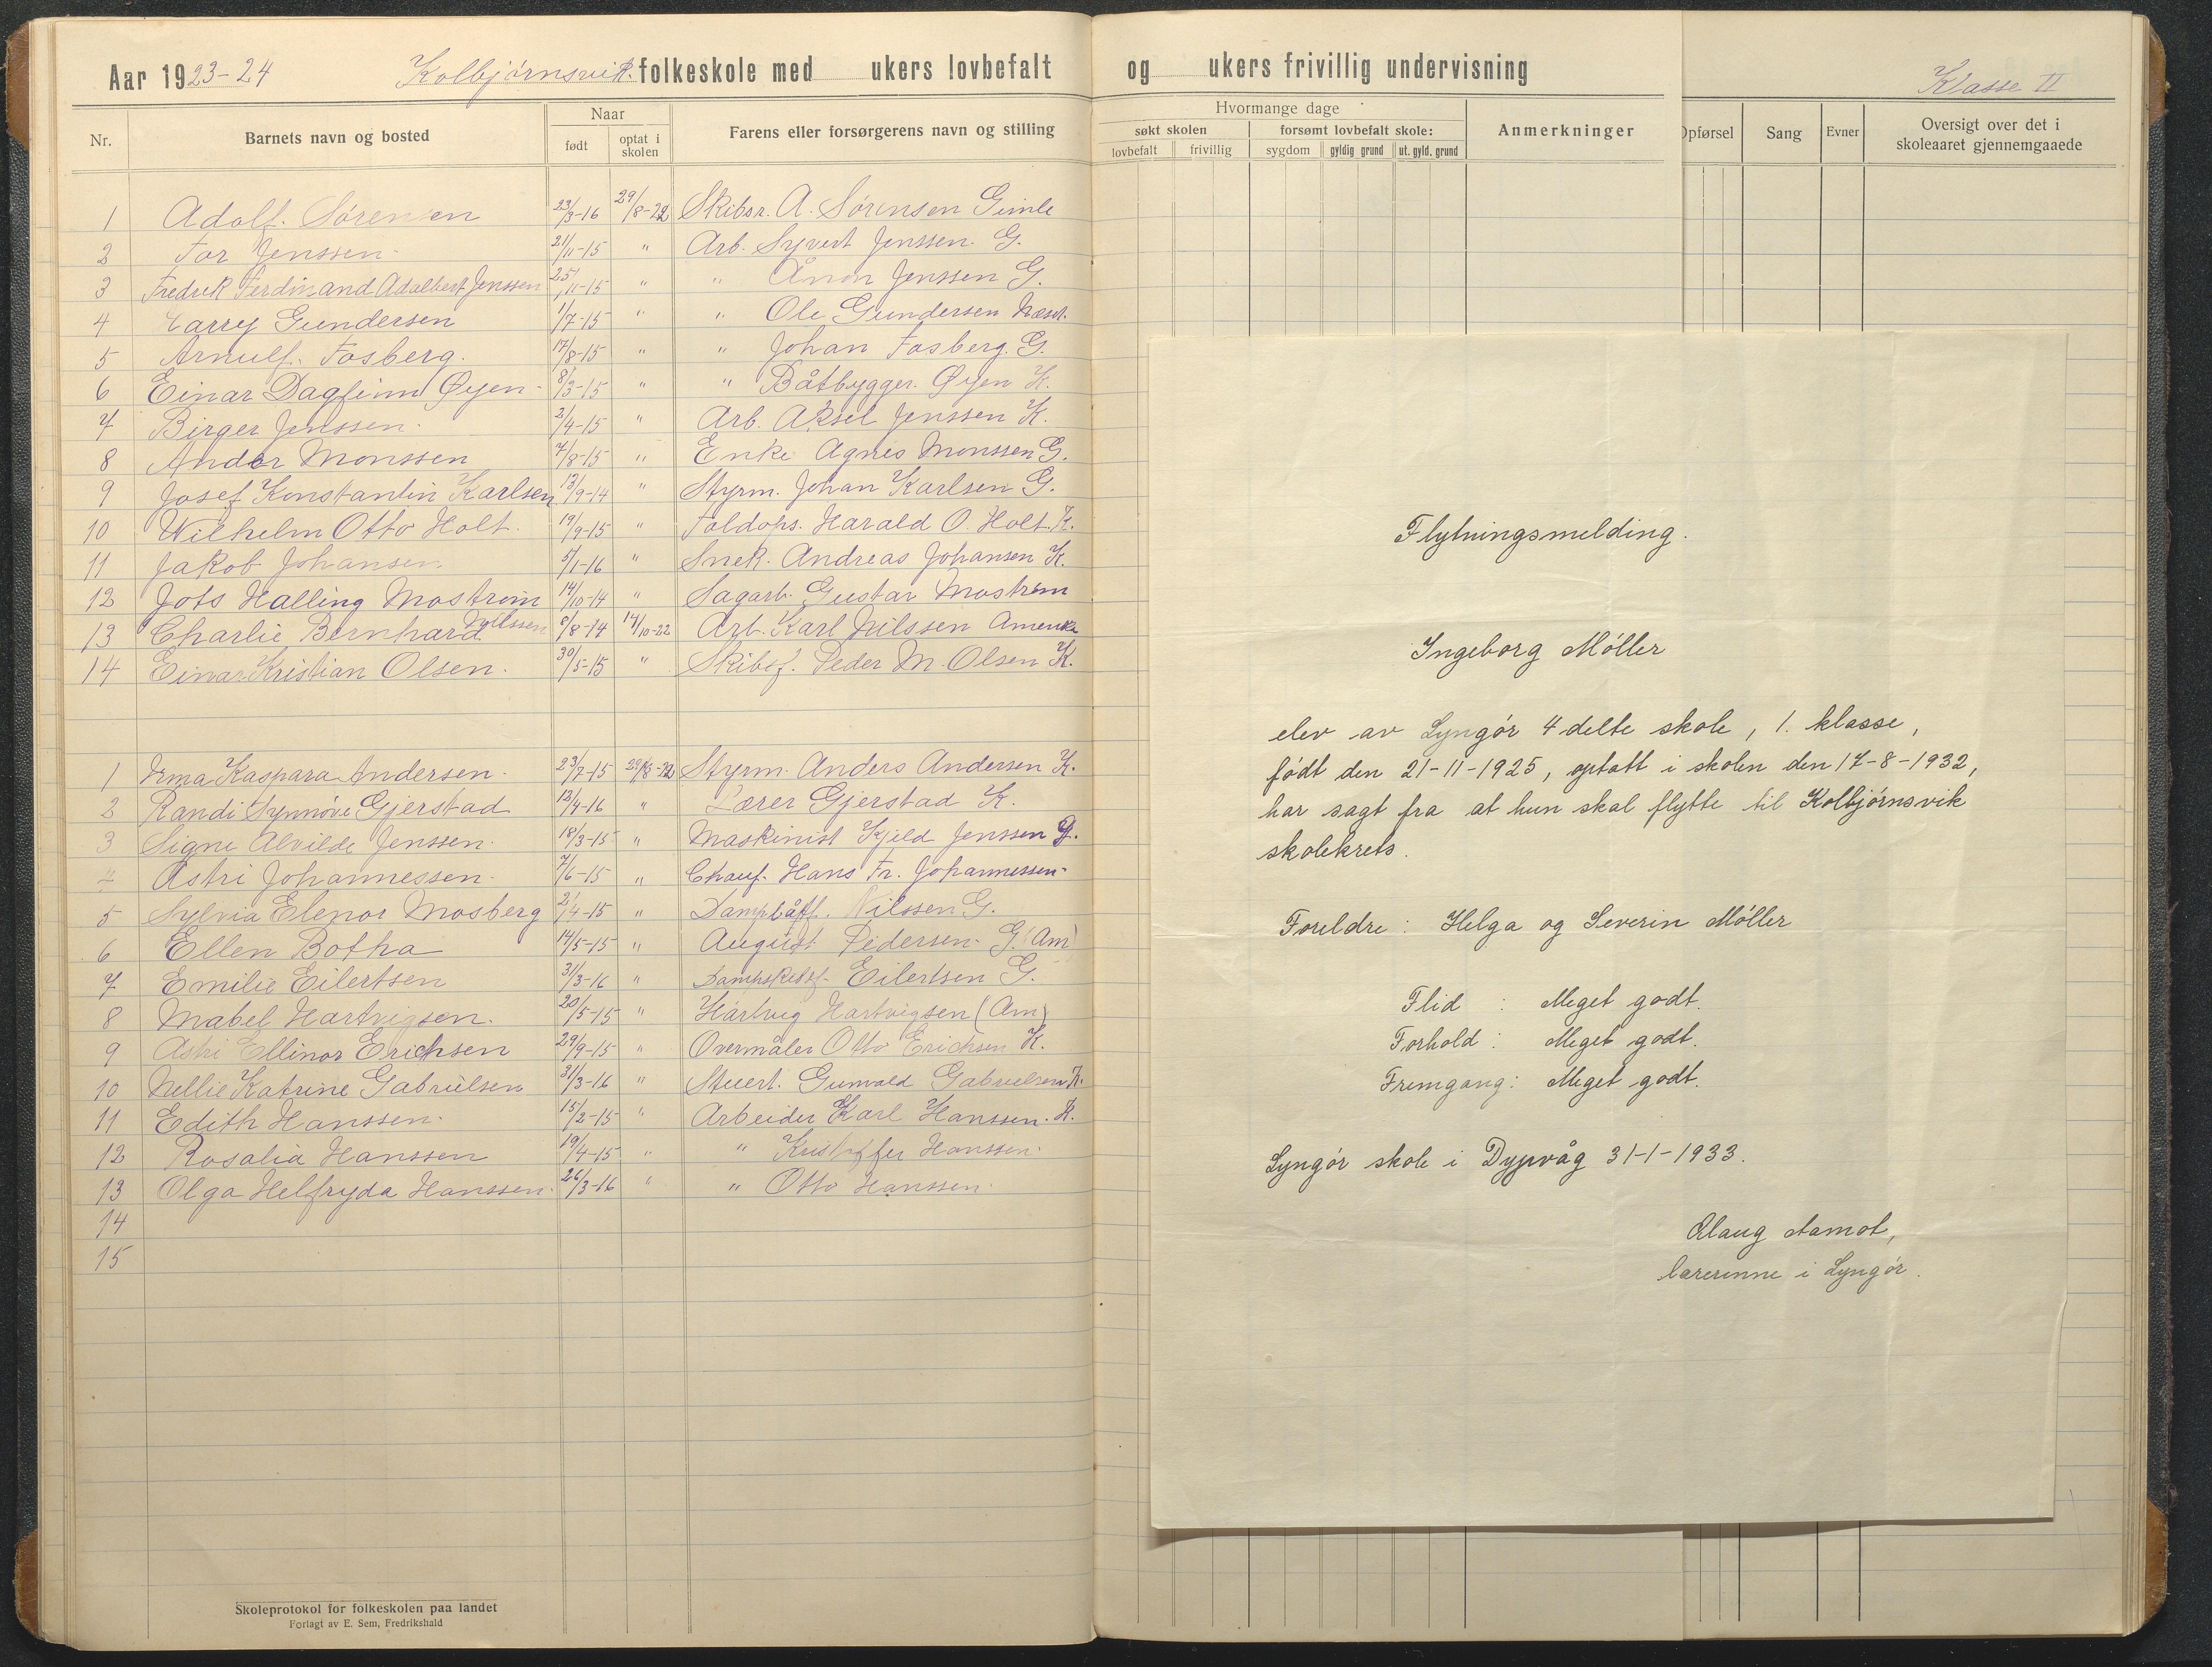 Aar 1923-24 Kolbjørnsvik folkeskole med ukers lovbefalt
Nr. Barnets navn og bosted Naar Farens eller forsørgerens navn og stilling
født optat i skolen
1 Adolf. Sørensen 23/3-16 29/8-22 Skibsr. A. Sørensen Gimle
2 Tor Jenssen 21/11-15 " Arb. Syvert Jenssen. G.
3 Fredrik Ferdinand Adalbert Jenssen 25/11-15 " " Ånon Jenssen G.
4 Harry Gundersen 1/7-15 " " Ole Gundersen
5 Arnulf. Fosberg. 17/8-15 " " Johan Fosberg. G.
6 Einar Dagfinn Øyen 8/3-15 " " Båtbygger. Øyen K.
7 Birger Jenssen. 2/4-15 " Arb. Aksel Jenssen K.
8 Andor Monssen 7/8-15 " Enke Agnes Monssen G.
9 Josef Konstantin Karlsen 13/9-14 " Styrm. Johan Karlsen G.
10 Wilhelm Otto Holt. 19/9-15 " Toldops. Harald O. Holt. K.
11 Jakob Johansen 5/1-16 " Snek. Andreas Johansen K.
12 Halling Mostrøm 14/10-14 " Sagarb. Gustav Mostrøm
13 Charlie Bernhard Nilssen 8/8-14 14/10-22 Arb. Karl Nilssen Amerika
14 Einar Kristian Olsen. 30/5-15 " Skibsf. Peder M. Olsen K.
1 Irma Kaspara Andersen. 23/7-15 29/8-22 Styrm. Anders Andersen K.
2 Randi Synnøve Gjerstad 13/4-16 " Lærer Gjerstad K.
3 Signe Alvilde Jenssen. 18/3-15 " Maskinist Kjeld Jenssen G.
4 Astri Johannessen. 7/6-15 " Chauf. Hans Fr. Johannessen
5 Sylvia Elenor Mosberg 2/4-15 " Nilssen G.
6 Ellen Botha 14/5-15 " August Pedersen. G. (Am)
7 Emilie Eilertsen 31/3-16 " Dampskibsf. Eilertsen G.
8 Mabel Hartvigsen. 20/5-15 " Hartvig Hartvigsen (Am)
9 Astri Ellinor Erichsen 29/9-15 " Overmåler Otto Erichsen K.
10 Nellie Katrine Gabrielsen 31/3-16 " Stuert. Gunvald Gabrielsen K.
11 Edith Hanssen. 15/2-15 " Arbeider Karl Hanssen. K.
12 Rosalia Hanssen 19/4-15 " " Kristoffer Hanssen.
13 Olga Helfryda Hanssen. 26/3-16 " " Otto Hanssen.
14
15
Skoleprotokol for folkeskolen paa landet
Forlagt av E. Sem, Fredrikshald
og ukers frivillig undervisning
Klasse II
Hvormange dage
søkt skolen forsømt lovbefalt skole: Anmerkninger
lovbefalt frivillig sygdom gyldig grund ut. gyld. grund
Opførsel Sang Evner Oversigt over det i
skoleaaret gjennemgaaede
Flytningsmelding.
Ingeborg Møller
elev av Lyngør 4 delte skole, 1. klasse,
født den 21-11-1925, optatt i skolen den 17-8-1932,
har sagt fra at hun skal flytte til Kolbjørnsvik
skolekrets.
Foreldre: Helga og Severin Møller
Flid : Meget godt.
Forhold : Meget godt.
Fremgang: Meget godt.
Lyngør skole i Dypvåg 31-1-1933.
Olaug Aamot,
lærerinne i Lyngør.